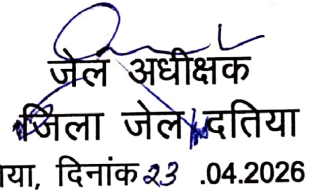 जेल अधीक्षक
जिला जेल दतिया
दिनांक 23 .04.2026